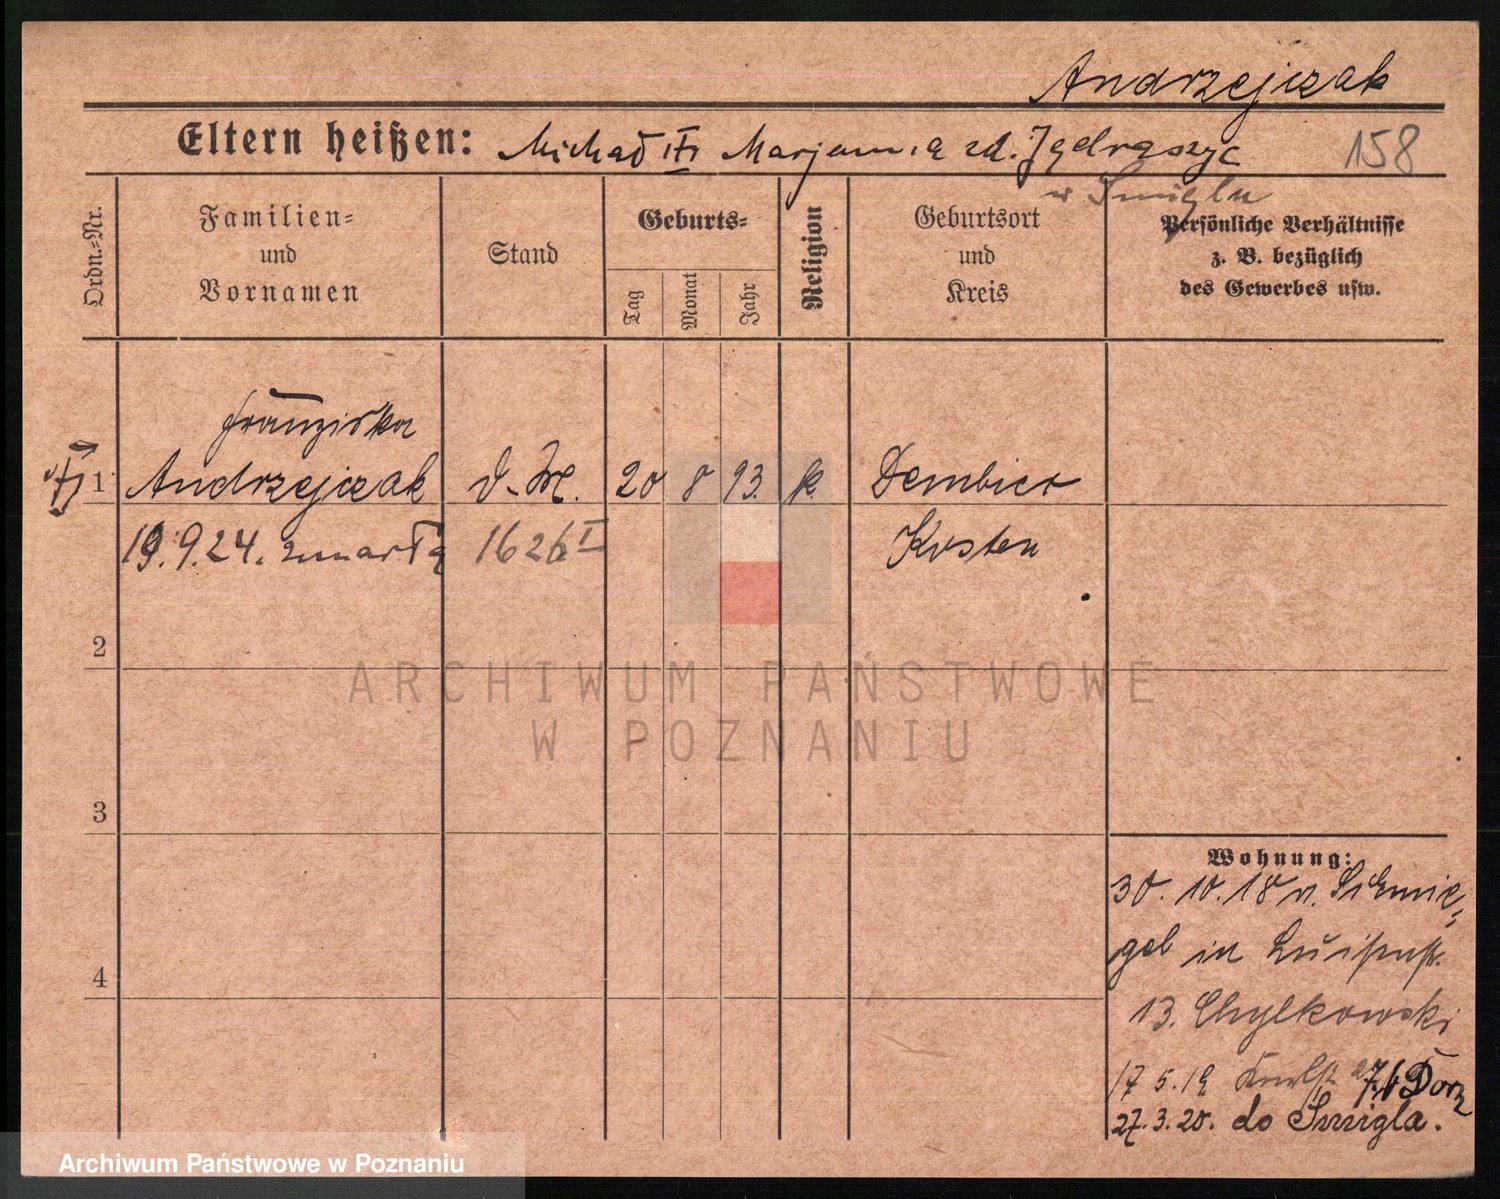 Andrzejczak
Eltern heißen: Michał Marjanna zd. Jędraszyc 158
w Śmiglu
Ordn.-Nr.
Familien-
und
Vornamen
Stand
Geburts-
Tag
Monat
Jahr
Religion
Geburtsort
und
Kreis
Persönliche Verhältnisse
z. B. bezüglich
des Gewerbes usw.
Franziska
1 Andrzejczak d. M. 20 8 93. k. Dembiec
19.9.24. zmarła 1626 I Kosten
2
ARCHIWUM PAŃSTWOWE
W POZNANIU
3
Wohnung:
30.10.18 v. Schmie-
gel in Luisenstr.
4
13. Chylkowski
17 5.19
27.3.20. do Śmigla.
Archiwum Państwowe w Poznaniu